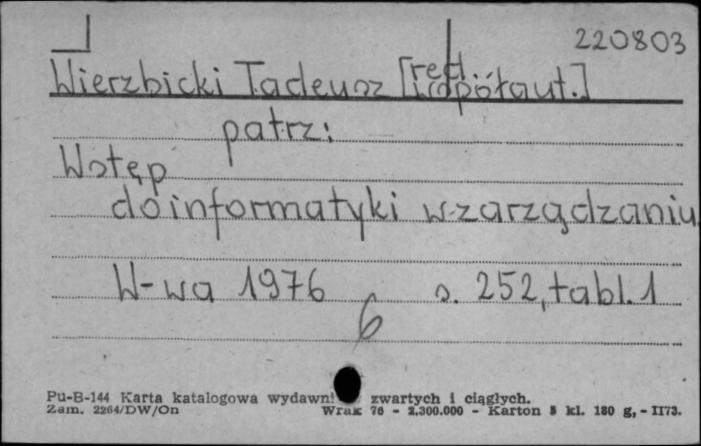 220803
Wierzbicki Tadeusz [red. i współaut.]
patrz:
Wstęp
do informatyki w zarządzaniu
W-wa 1976 s. 252, tabl. 1
6
Pu-B-144 Karta katalogowa wydawni zwartych i ciągłych.
Zam. 2264/DW/On Wrak 76 - 2.300.000 - Karton 5 kl. 180 g, - II73.